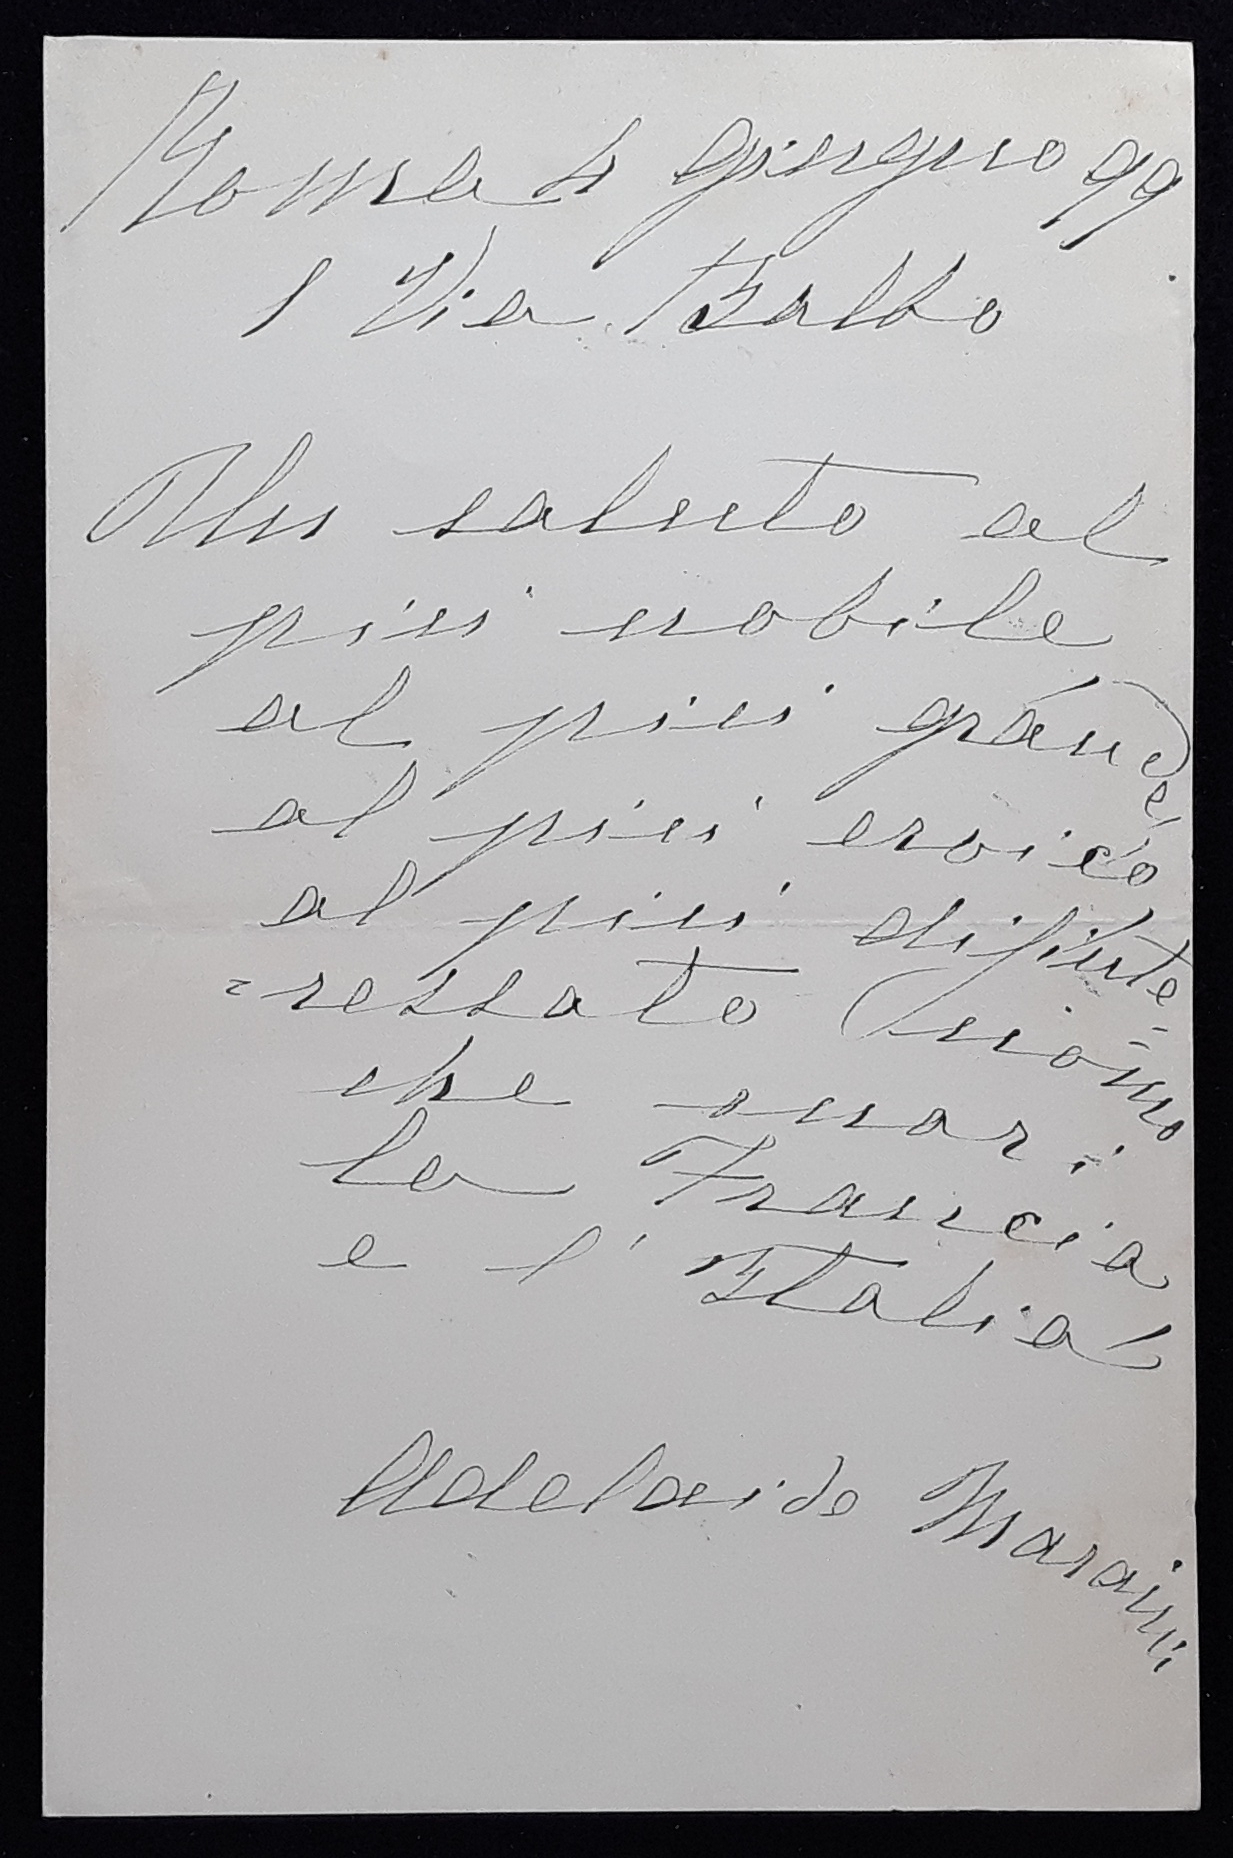 Roma 4 giugno 99
1 Via Balbo
Un saluto al
più nobile
al più grande
al più eroico
al più disinte=
=ressato uomo
che onori
la Francia
e l'Italia!
Adelaide Maraini